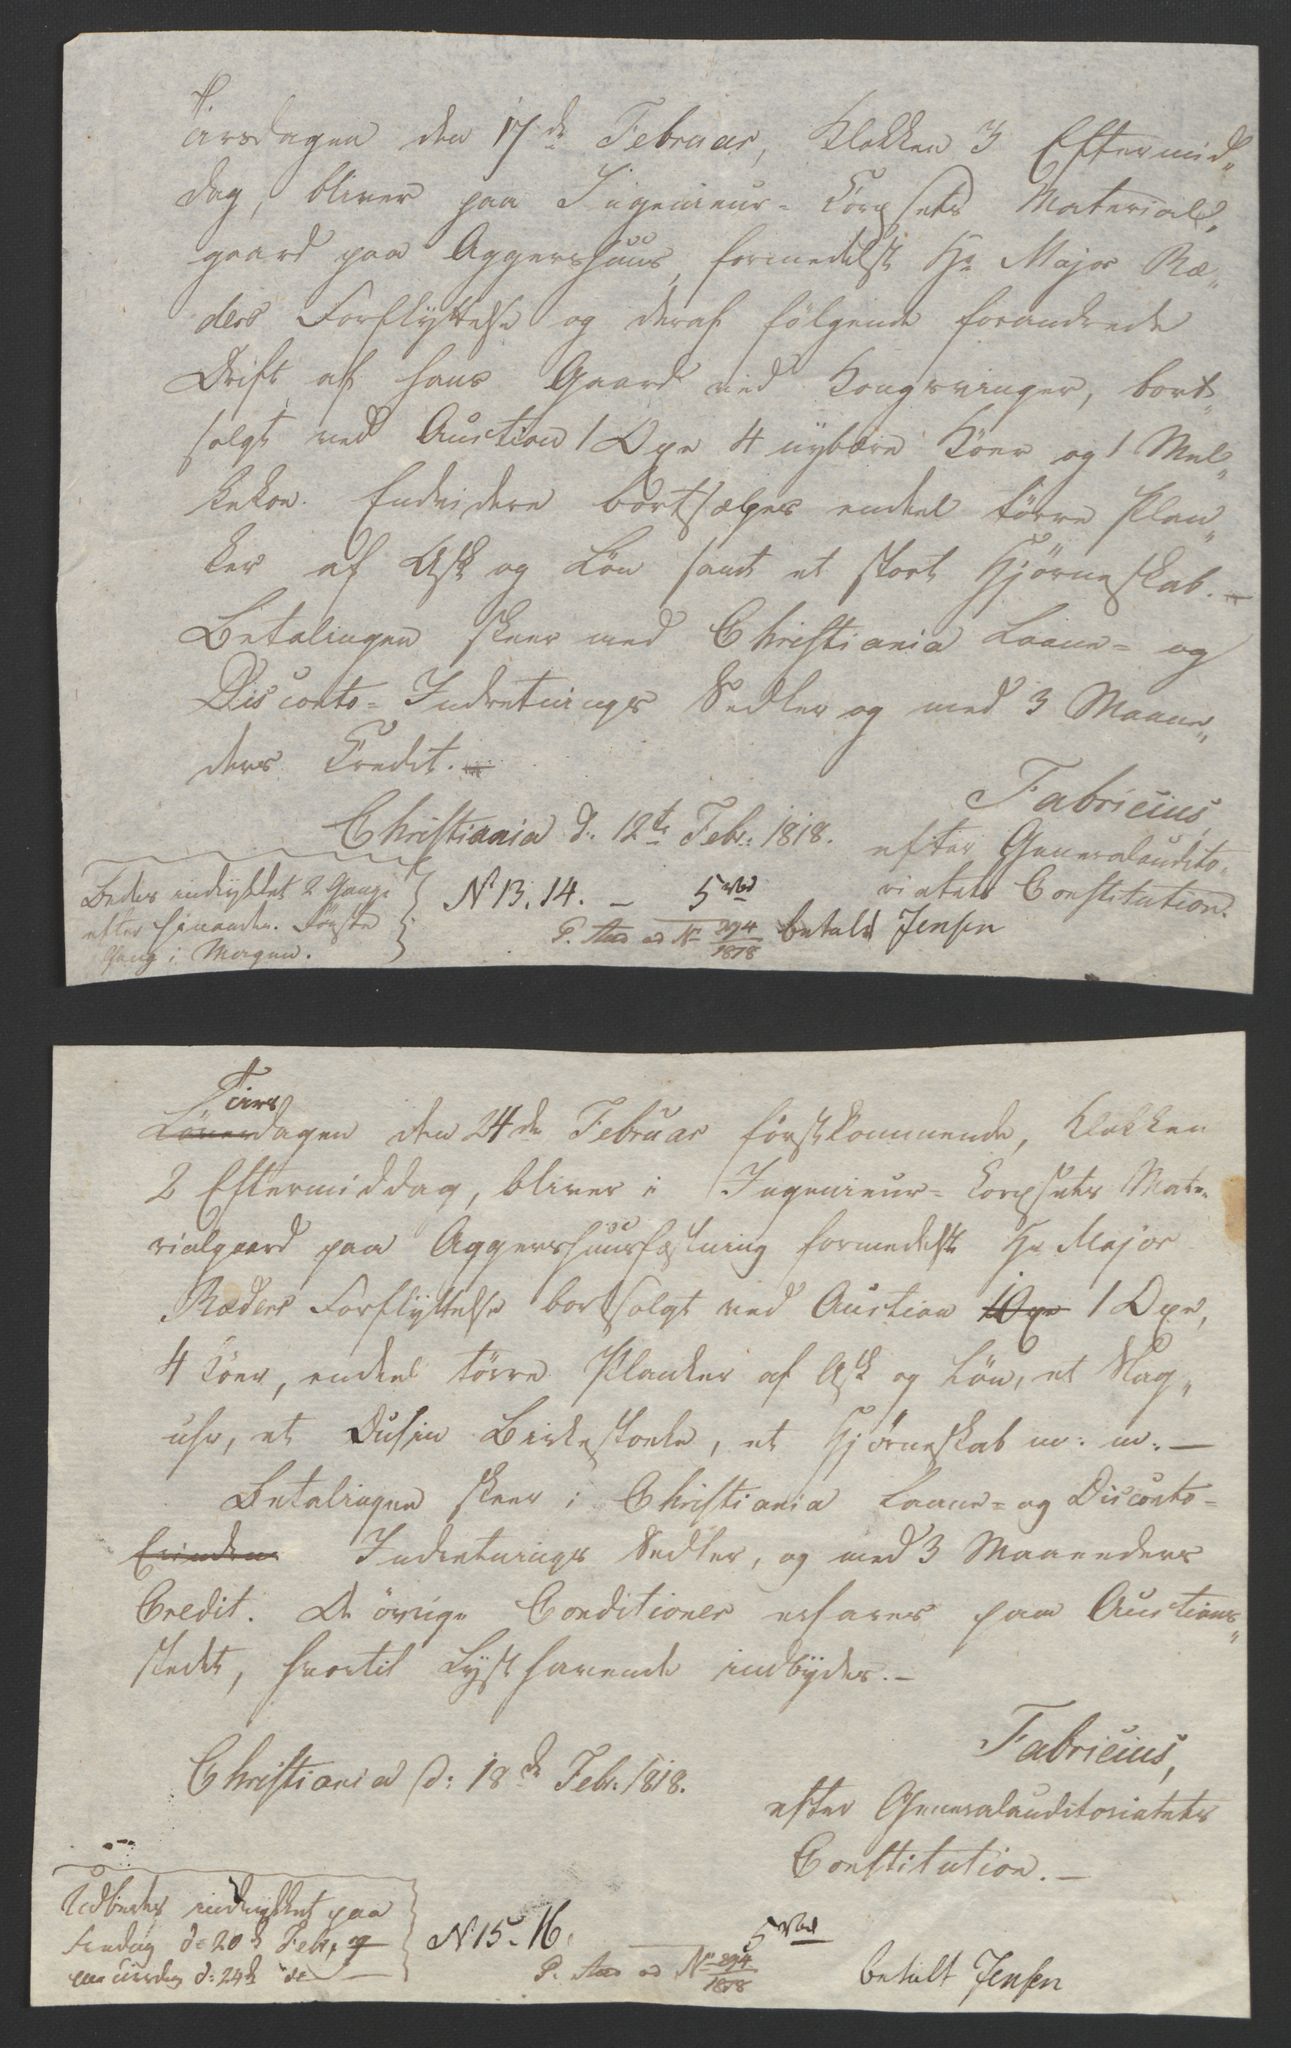 Tirsdagen den 17de Februar, Klokken 3 Eftermid„
dag, bliver paa Ingenieur= Corpsets Material„
gaard paa Aggershuus, formedelst Hr Major Ræ„
ders Forflyttelse og deraf følgende forandrede
Drift af hans Gaard ved Kongsvinger, bort„
solgt ved Auction 1 Oxe 4 nybære Køer og 1 Mel„
kekoe. Endvidere bortsælges endeel tørre Plan„
ker af Ask og Løn samt et stort Hjørneskab.
Betalingen skeer med Christiania Laane= og
Disconto= Indretnings Sedler og med 3 Maane„
ders Credit.
Christiania d: 12te Febr: 1818.
Fabricius,
efter Generalaudito„
riatets Constitution.
Bedes indrykket 2 Gange
efter hinanden. Første
Gang i Morgen.
No 13. 14. — 5 rbd
P. ad No 294/1818
betalt Jensen
Tirs
Løverdagen den 24de Februar førstkommende, Klokken
2 Eftermiddag, bliver i Ingenieur= Corpsets Mate„
rialgaard paa Aggershuusfæstning formedelst Hr Major
Ræders Forflyttelse bortsolgt ved Auction 1 Oxe 1 Oxe,
4 Køer, endeel tørre Planker af Ask og Løn, et Slag„
uhr, et Dusin Birkestoele, et Hjørneskab m: m: —
Betalingen skeer i Christiania Laane= og Disconto=
Indretnings Sedler, og med 3 Maaneders
Credit. De øvrige Conditioner erfares paa Auctions„
stedet, hvortil Lysthavende indbydes. —
Christiania d: 18de Febr: 1818.
Fabricius,
efter Generalauditoriatets
Constitution. —
Udbedes indrykket paa
Fredag d: 20de Febr, og
paa Tirsdag d: 24de de
No 15. 16. — 5 rbd
P. ad No 294/1818
betalt Jensen